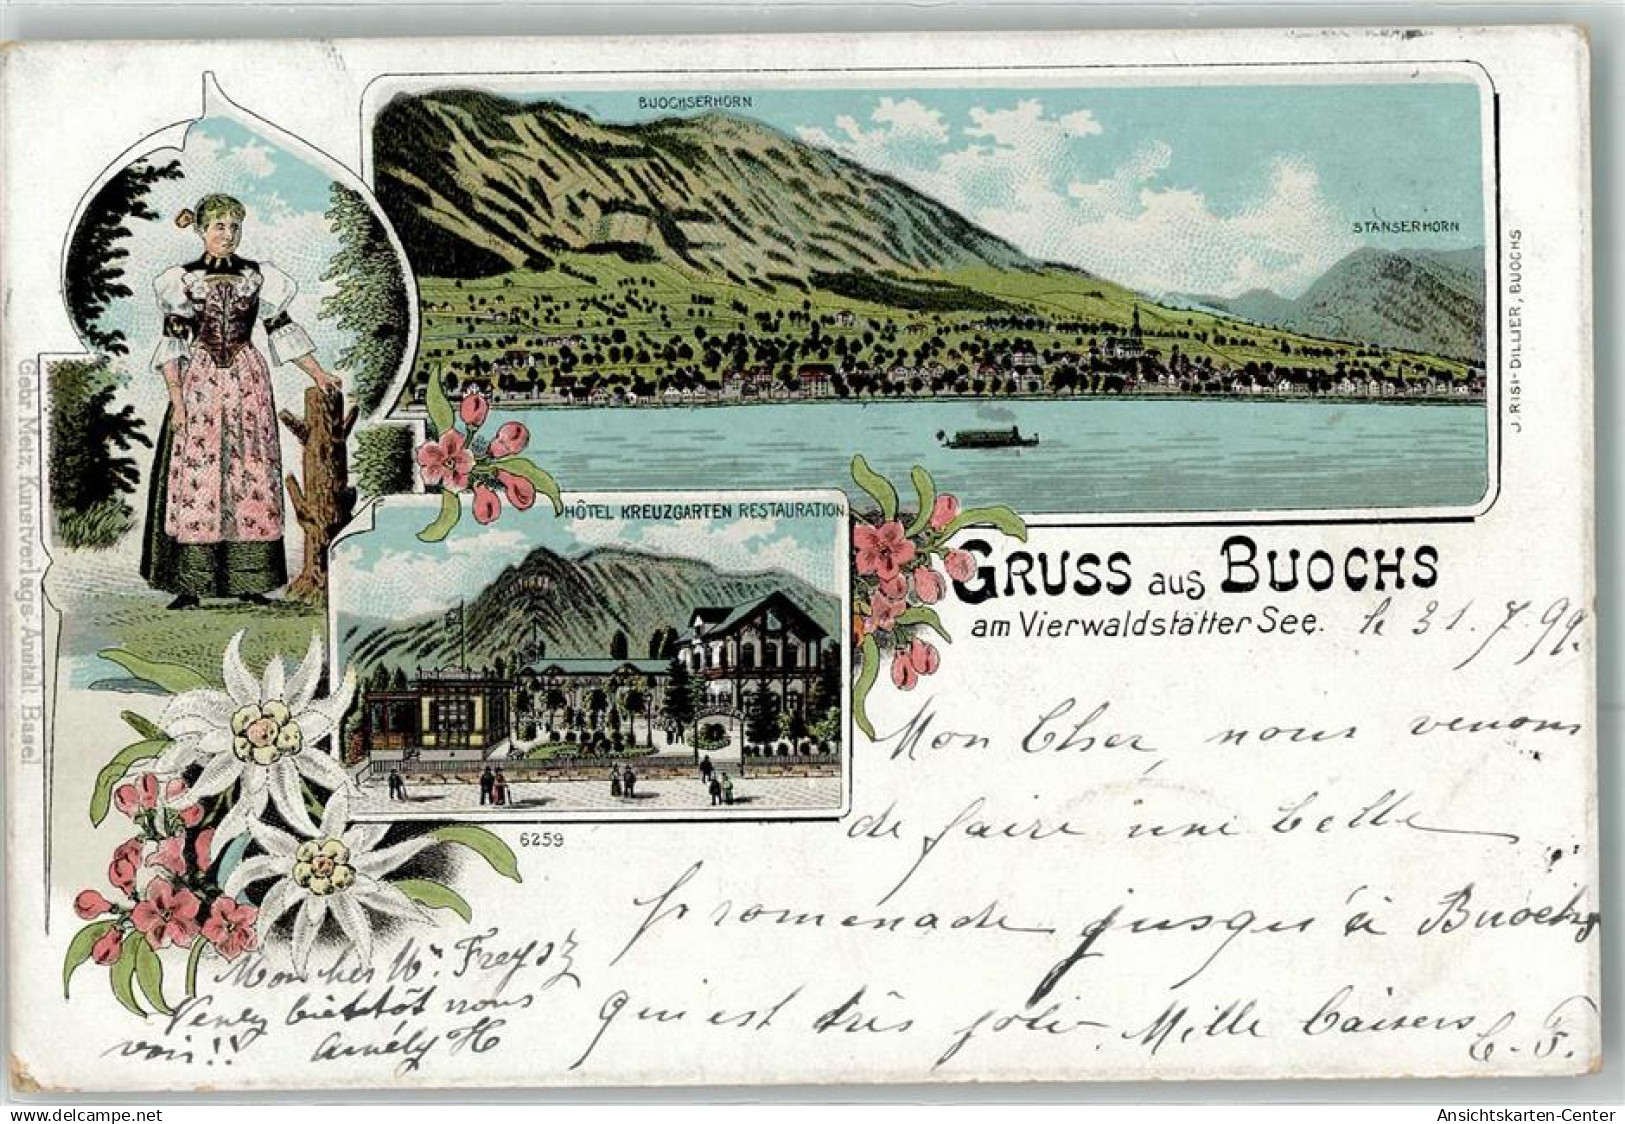 BUOCHSERHORN
STANSERHORN
J. RISI-DILLIER, BUOCHS
Gebr. Metz, Kunstverlags-Anstalt, Basel
HÔTEL KREUZGARTEN RESTAURATION
GRUSS aus BUOCHS
am Vierwaldstätter See.
le 31. 7. 99.
6259
Mon Cher, nous venons
de faire une belle
promenade jusqu'à Buochs
qui est très jolie. Mille baisers
C. F.
Mon cher Mr. Freysz
Venez bientôt nous
voir!! Amély H
delcampe.net
Ansichtskarten-Center